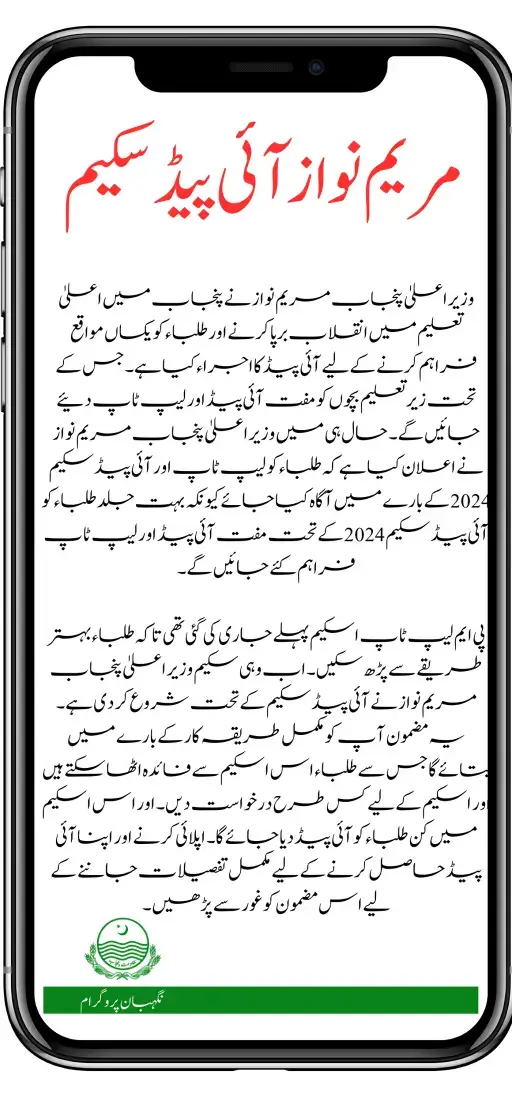 مریم نواز آئی پیڈ سکیم
وزیر اعلیٰ پنجاب مریم نواز نے پنجاب میں اعلیٰ
تعلیم میں انقلاب برپا کرنے اور طلباء کو یکساں مواقع
فراہم کرنے کے لیے آئی پیڈ کا اجراء کیا ہے۔ جس کے
تحت زیر تعلیم بچوں کو مفت آئی پیڈ اور لیپ ٹاپ دیئے
جائیں گے۔ حال ہی میں وزیر اعلیٰ پنجاب مریم نواز
نے اعلان کیا ہے کہ طلباء کو لیپ ٹاپ اور آئی پیڈ سکیم
2024 کے بارے میں آگاہ کیا جائے کیونکہ بہت جلد طلباء کو
آئی پیڈ سکیم 2024 کے تحت مفت آئی پیڈ اور لیپ ٹاپ
فراہم کئے جائیں گے۔
پی ایم لیپ ٹاپ اسکیم پہلے جاری کی گئی تھی تاکہ طلباء بہتر
طریقے سے پڑھ سکیں۔ اب وہی سکیم وزیر اعلیٰ پنجاب
مریم نواز نے آئی پیڈ سکیم کے تحت شروع کر دی ہے۔
یہ مضمون آپ کو مکمل طریقہ کار کے بارے میں
بتائے گا جس سے طلباء اس اسکیم سے فائدہ اٹھا سکتے ہیں
اور اسکیم کے لیے کس طرح درخواست دیں۔ اور اس اسکیم
میں کن طلباء کو آئی پیڈ دیا جائے گا۔ اپلائی کرنے اور اپنا آئی
پیڈ حاصل کرنے کے لیے مکمل تفصیلات جاننے کے
لیے اس مضمون کو غور سے پڑھیں۔
نگہبان پروگرام